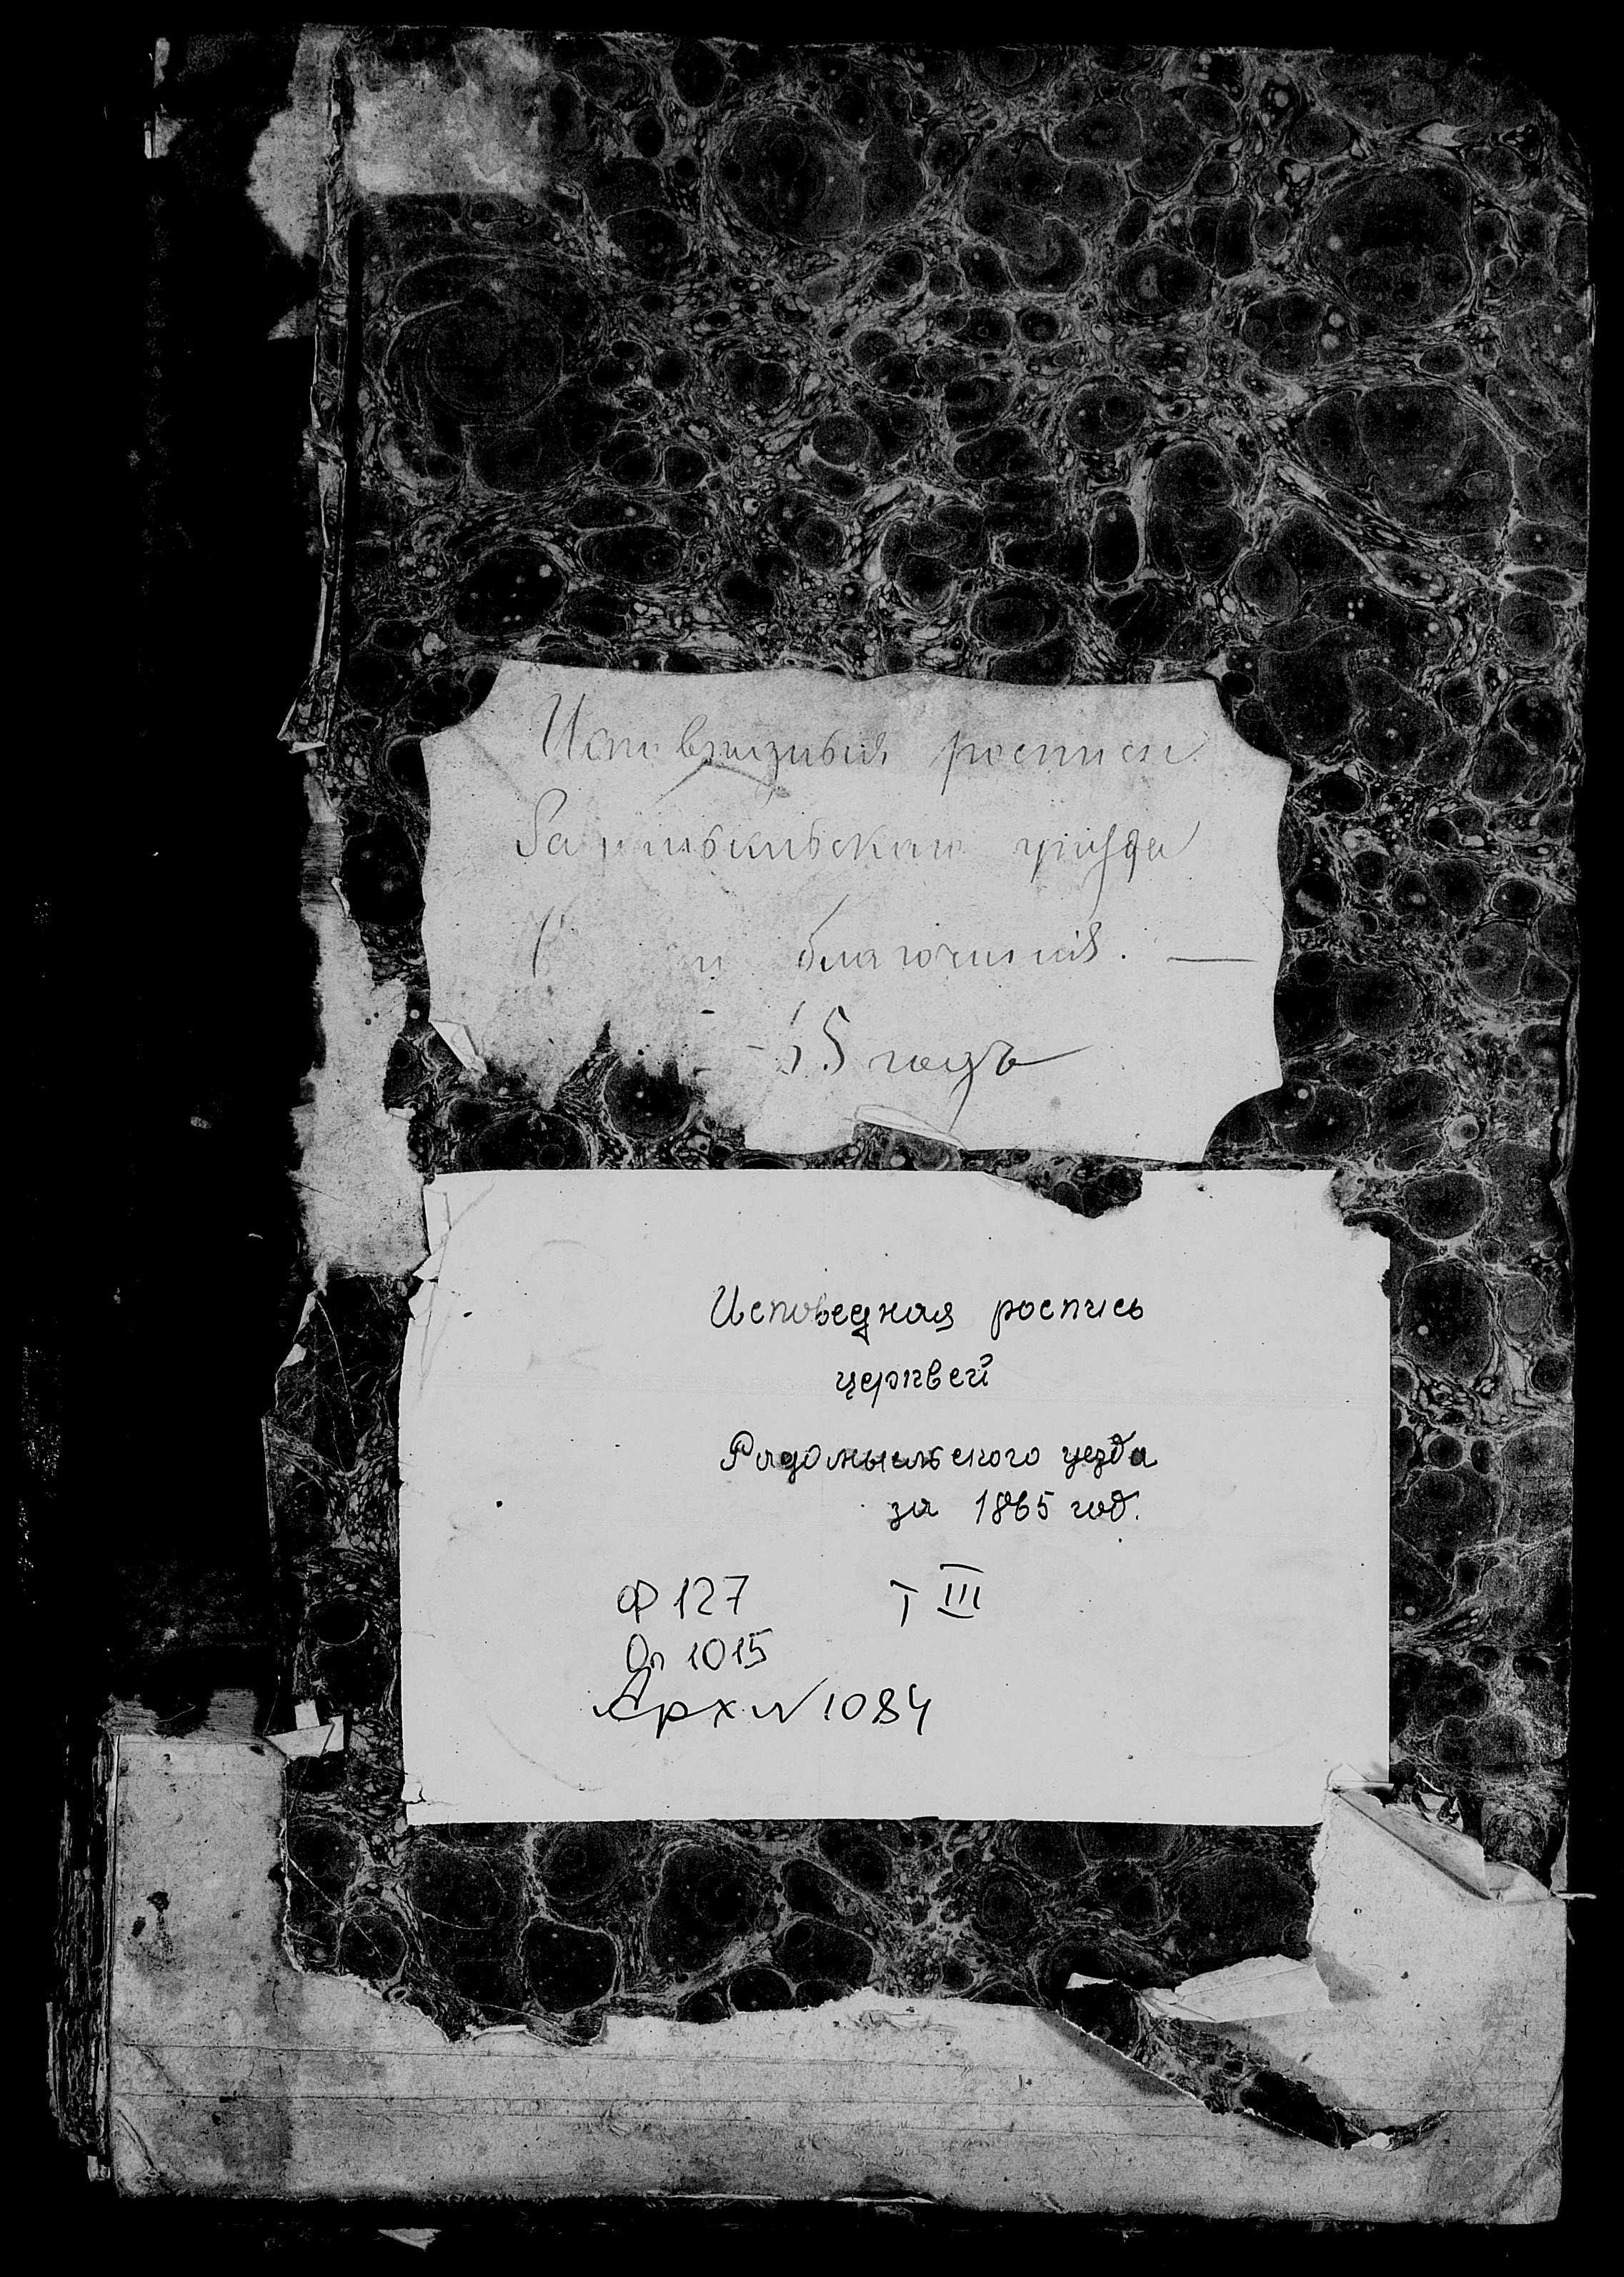 Исповѣдныя росписи
Радомысльскаго уѣзда
благочинія. —
5 годъ
Исповедная роспись
церквей
Радомысльского уезда
за 1865 год.
Ф 127 Т III
Оп 1015
Арх № 1084